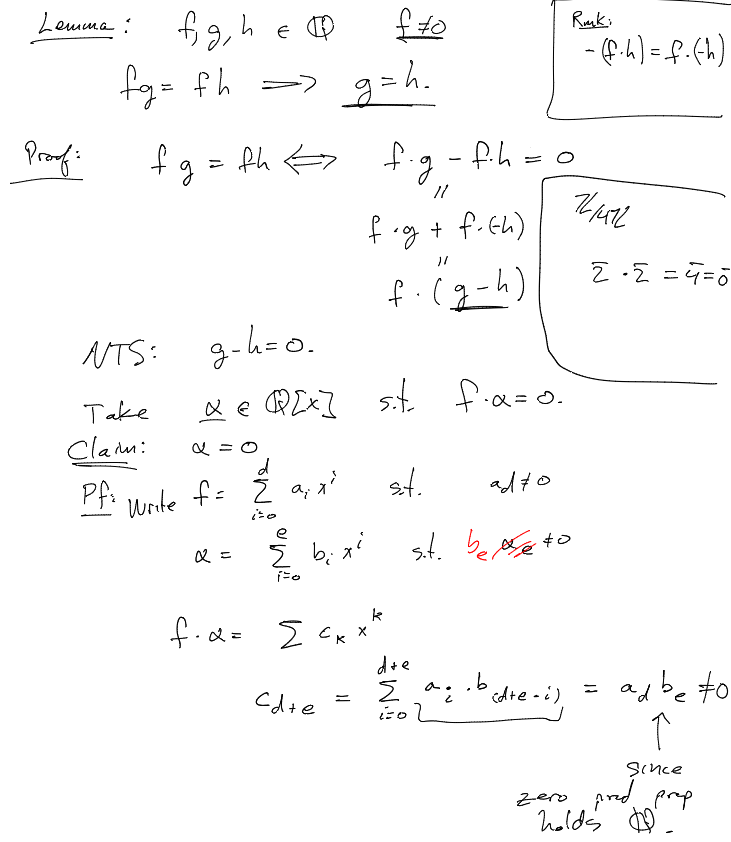 Lemma: f, g, h ∈ ℚ f ≠ 0
fg = fh ⟹ g = h.
Rmk:
-(f·h) = f·(-h)
Proof: f g = fh ⟺ f·g - f·h = 0
"
f·g + f·(-h)
"
f·(g - h)
ℤ/4ℤ
2̄ · 2̄ = 4̄ = 0̄
NTS: g - h = 0.
Take α ∈ ℚ[x] s.t. f·α = 0.
Claim: α = 0
Pf: Write f = ∑_{i=0}^{d} a_i x^i s.t. a_d ≠ 0
α = ∑_{i=0}^{e} b_i x^i s.t. b_e ≠ 0
f·α = ∑ c_k x^k
c_{d+e} = ∑_{i=0}^{d+e} a_i · b_{(d+e-i)} = a_d b_e ≠ 0
↑
since
zero prod prop
holds ℚ.